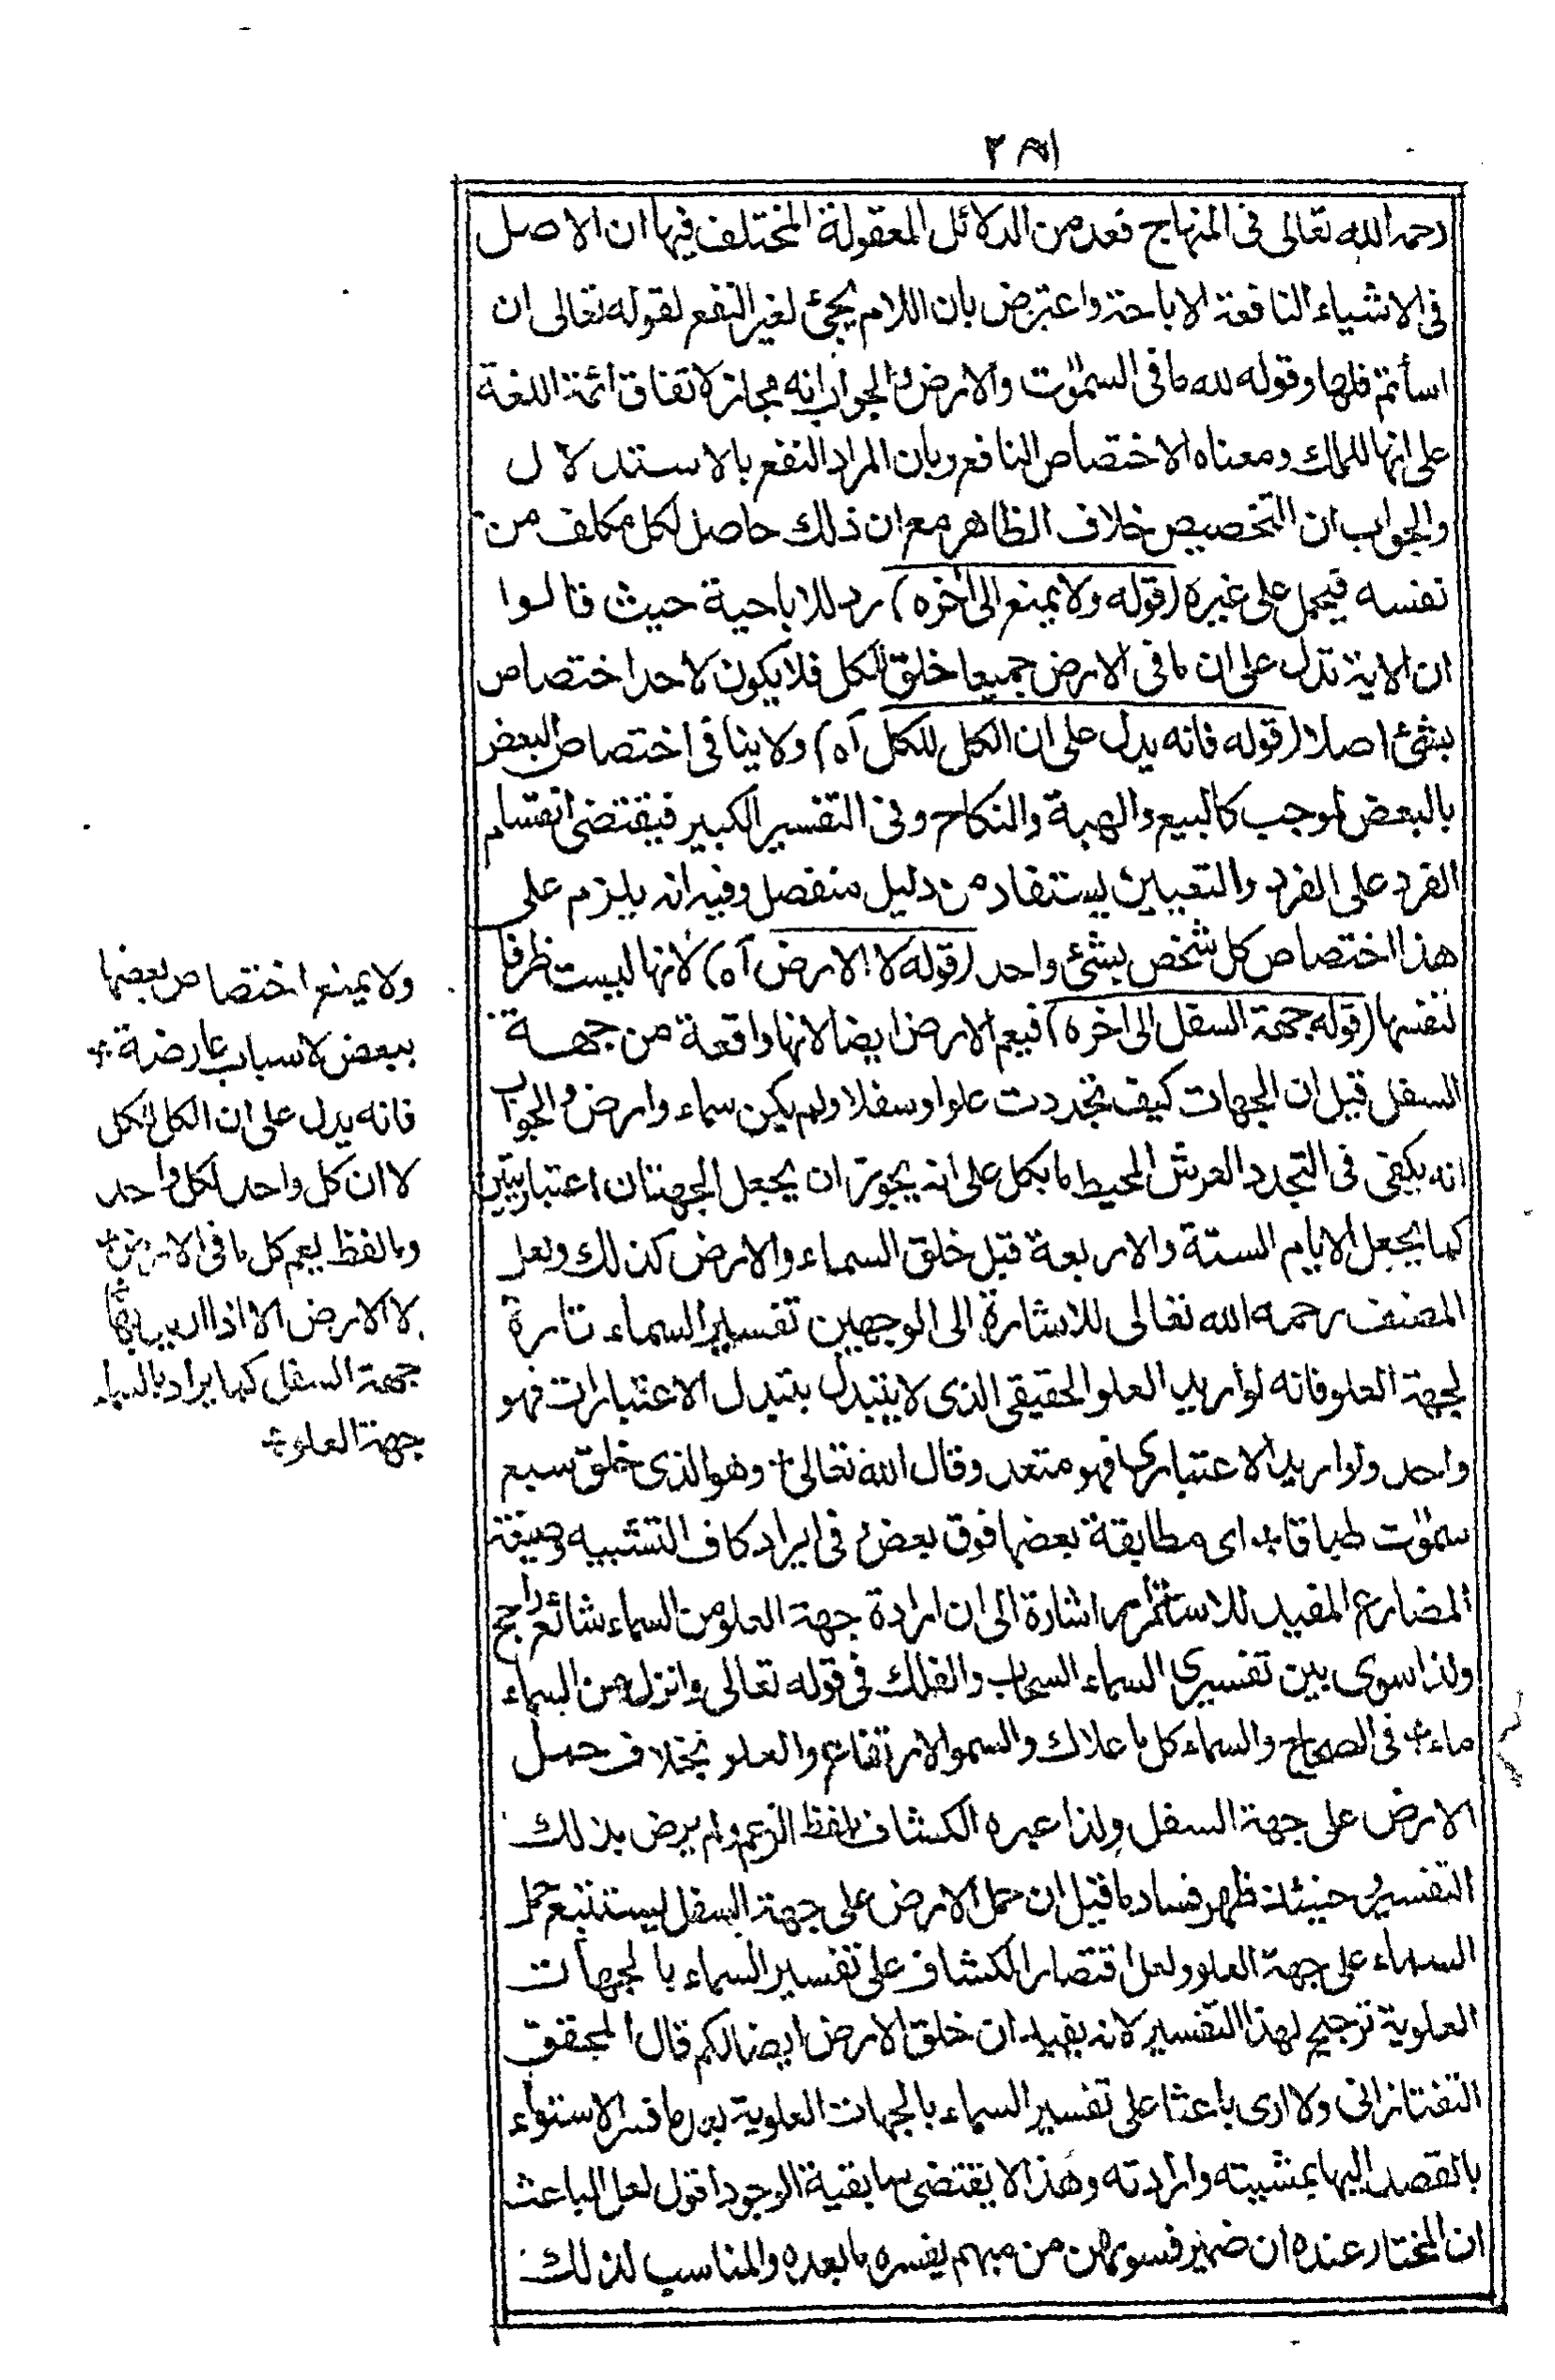 ٢٨١
رحمه الله تعالى فى المنهاج فعد من الدلائل المعقولة المختلف فيها ان الاصل
فى الاشياء النافعة الاباحة واعترض بان اللام يجئ لغير النفع لقوله تعالى ان
اسأتم فلها وقوله لله ما فى السموت والارض والجواب انه مجاز لاتفاق ائمة اللغة
على انها للملك ومعناه الاختصاص النافع وبان المراد النفع بالاستدلال
والجواب ان التخصيص خلاف الظاهر مع ان ذلك حاصل لكل مكلف من
نفسه فيحمل على غيره (قوله ولا يمنع الى اخره) رد للاباحية حيث قالوا
ان الاية تدل على ان ما فى الارض جميعا خلق للكل فلا يكون لاحد اختصاص
بشئ اصلا (قوله فانه يدل على ان الكل للكل آه) ولا ينافى اختصاص البعض
بالبعض لموجب كالبيع والهبة والنكاح وفى التفسير الكبير فيقتضى انقسام
الفرد على الفرد والتعيين يستفاد من دليل منفصل وفيه انه يلزم على
هذا اختصاص كل شخص بشئ واحد (قوله لا الارض آه) لانها ليست ظرفا
لنفسها (قوله جهة السفل الى اخره) فيعم الارض ايضا لانها واقعة من جهة
السفل قيل ان الجهات كيف تجددت علوا وسفلا ولم يكن سماء وارض والجواب
انه يكفى فى التجدد العرش المحيط بالكل على انه يجوز ان يجعل الجهتان اعتباريتين
كما يجعل الايام الستة والاربعة قبل خلق السماء والارض كذلك ولعل
المصنف رحمه الله تعالى للاشارة الى الوجهين تفسير السماء تارة
لجهة العلو فانه لو اريد العلو الحقيقى الذى لا يتبدل بتبدل الاعتبارات فهو
واحد ولو اريد الاعتبارى فهو متعدد وقال الله تعالى وهو الذى خلق سبع
سموت طباقا اى مطابقة بعضها فوق بعض فى ايراد كاف التشبيه وصيغة
المضارع المفيد للاستمرار اشارة الى ان ارادة جهة العلو من السماء شائع راجح
ولذا سوى بين تفسيرى السماء السحاب والفلك فى قوله تعالى وانزل من السماء
ماء فى الصحاح والسماء كل ما علاك والسمو الارتفاع والعلو بخلاف حمل
الارض على جهة السفل ولذا عبره الكشاف بلفظ الزعم ولم يرض بذلك
التفسير وحينئذ ظهر فساد ما قيل ان حمل الارض على جهة السفل يستتبع حمل
السماء على جهة العلو ولعل اقتصار الكشاف على تفسير السماء بالجهات
العلوية ترجيح لهذا التفسير لانه يفيد ان خلق الارض ايضا لكم قال المحقق
التفتازانى ولا ارى باعثا على تفسير السماء بالجهات العلوية بعد ما فسر الاستواء
بالقصد اليها بمشيته وارادته وهذا لا يقتضى سابقية الوجود اقول لعل الباعث
ان المختار عنده ان ضمير فسوىهن من مبهم يفسره ما بعده والمناسب لذلك
ولا يمنع اختصاص بعضها
ببعض لاسباب عارضة
فانه يدل على ان الكل للكل
لا ان كل واحد لكل واحد
وما لفظ يعم كل ما فى الارض
لا الارض الا اذا اريد بها
جهة السفل كما يراد بالسماء
جهة العلو